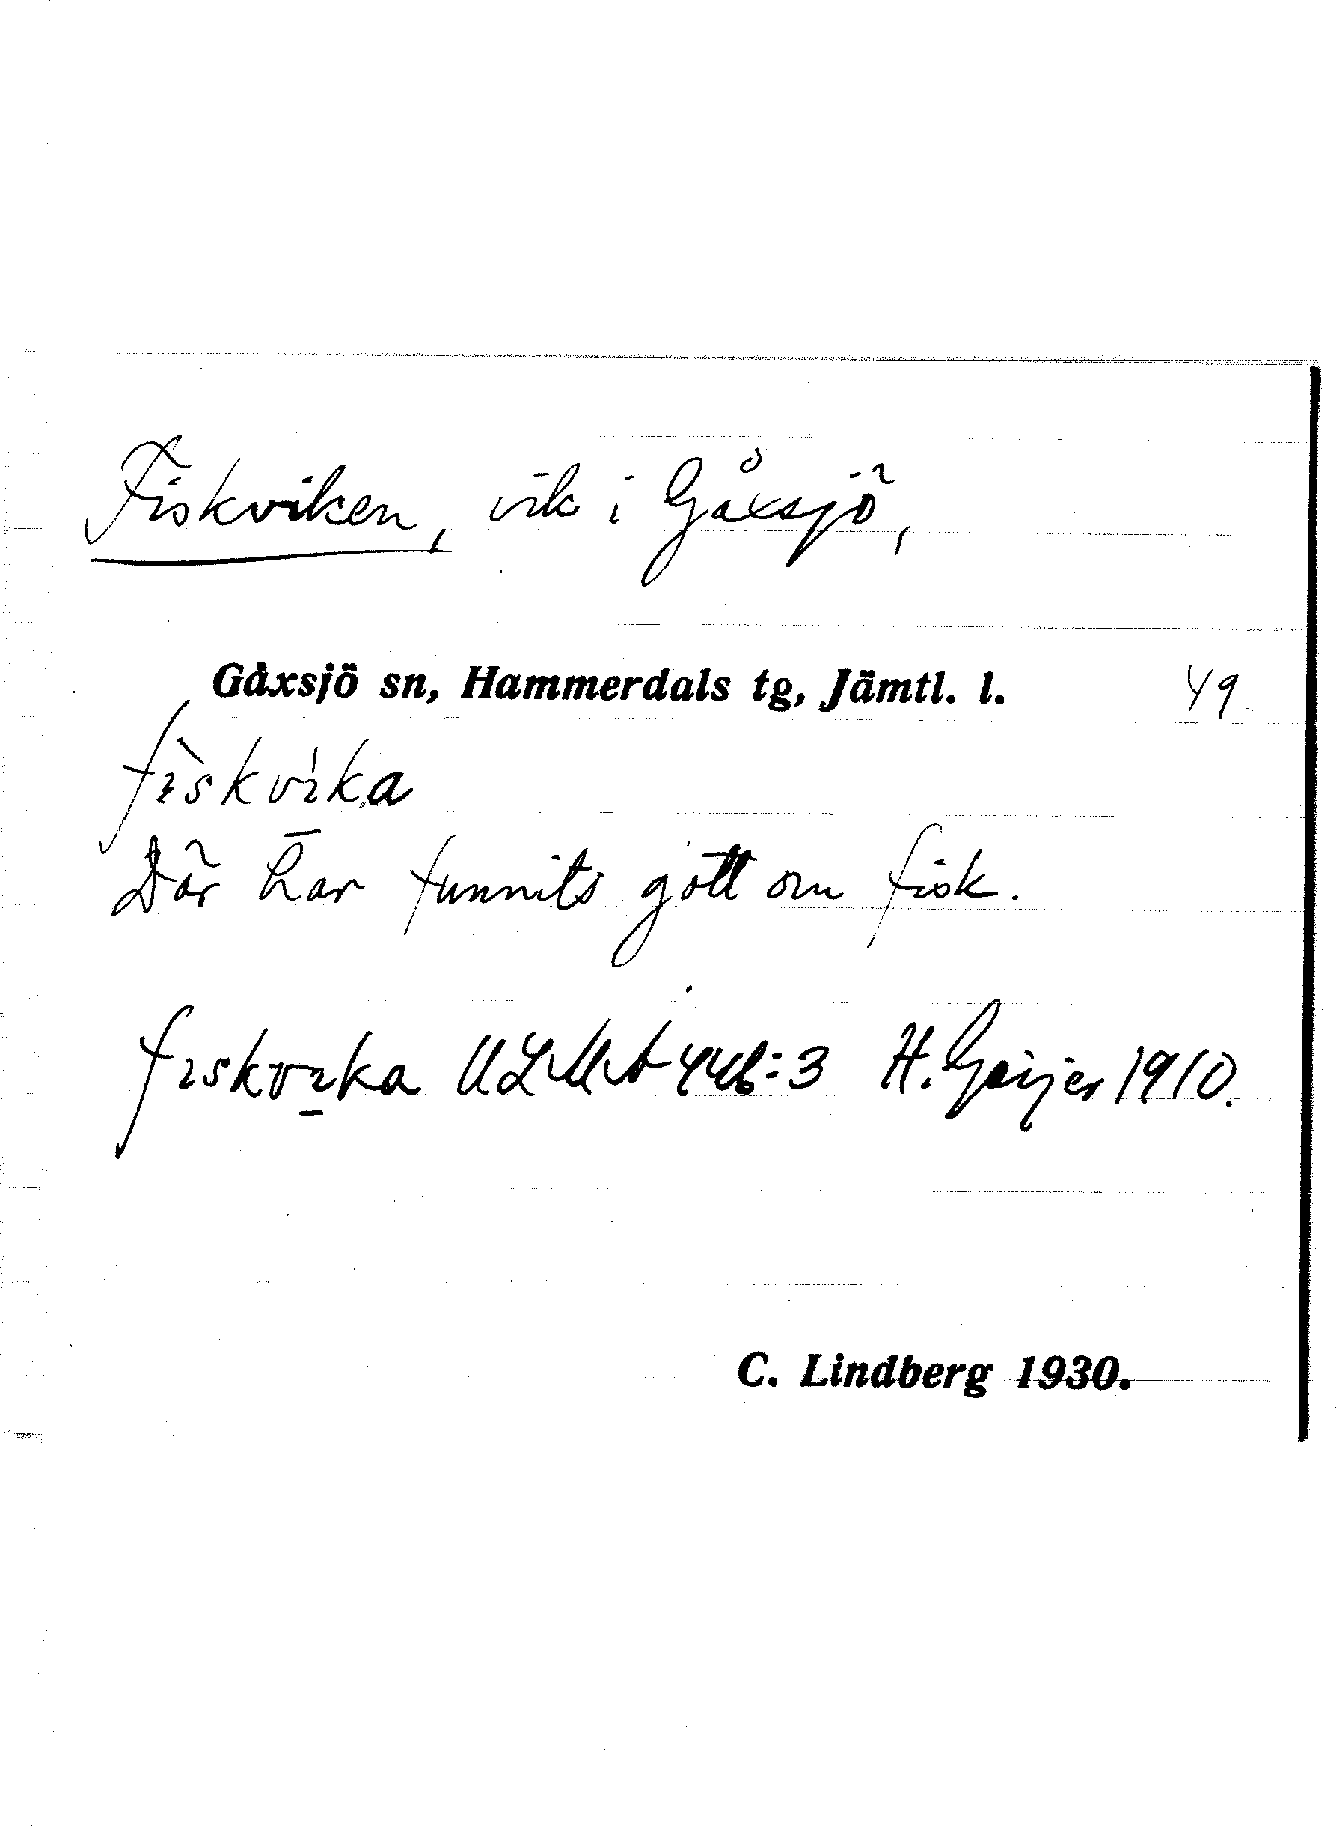 Fiskviken, vik i Gåxsjö,
Gåxsjö sn, Hammerdals tg, Jämtl. l. 49
fiskvika
Där har funnits gott om fisk.
fiskvika ULMA 446:3 H. Geijer 1910.
C. Lindberg 1930.